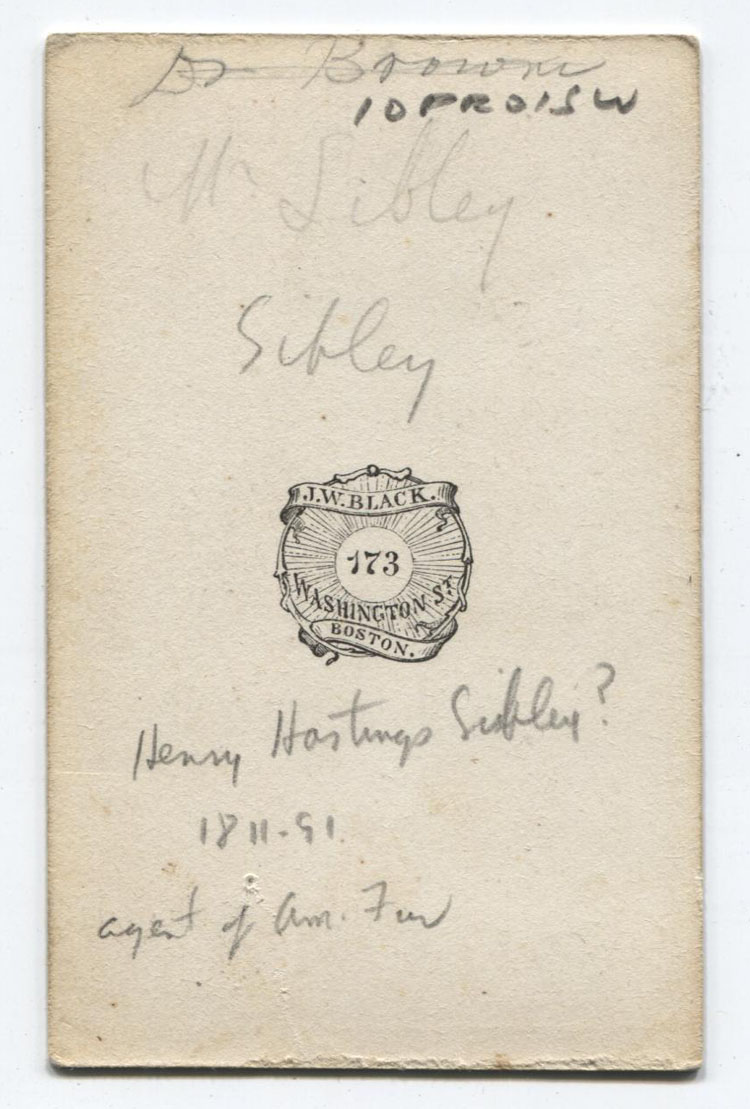 Dr Brown
10PRO1SW
Mr Sibley
Sibley
J.W. BLACK.
173
WASHINGTON ST.
BOSTON.
Henry Hastings Sibley?
1811-91.
agent of Am. Fur